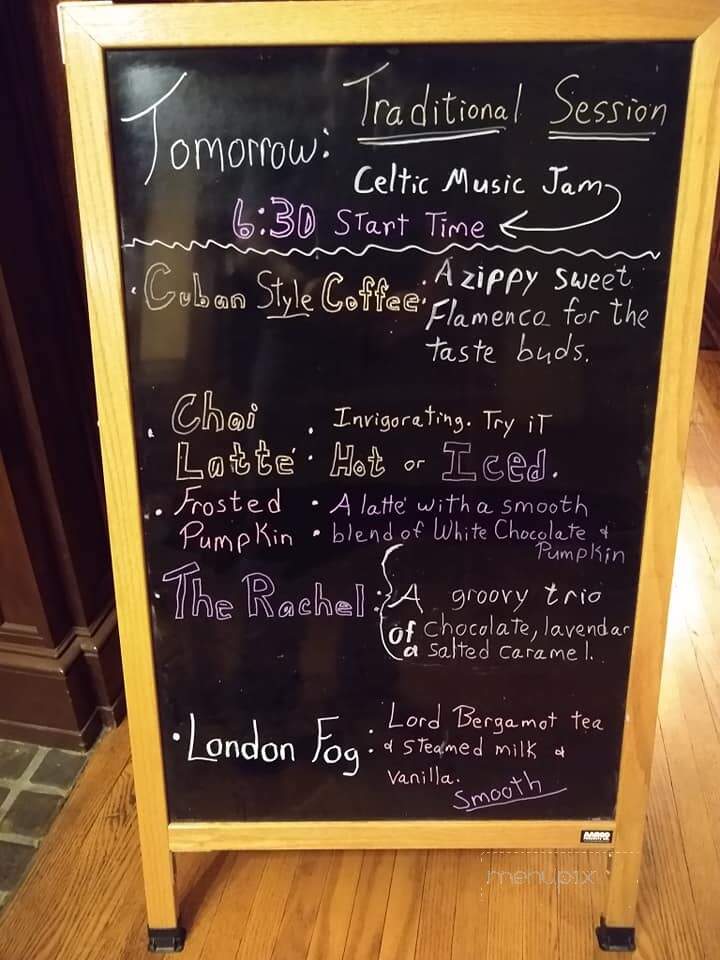 Tomorrow: Traditional Session
Celtic Music Jam
6:30 Start Time
• Cuban Style Coffee: A zippy sweet
Flamenco for the
taste buds.
• Chai • Invigorating. Try it
Latté • Hot or Iced.
• Frosted • A latté with a smooth
Pumpkin • blend of White Chocolate &
Pumpkin
• The Rachel: A groovy trio
of chocolate, lavendar
& salted caramel.
• London Fog: Lord Bergamot tea
& steamed milk &
vanilla.
Smooth
menupix